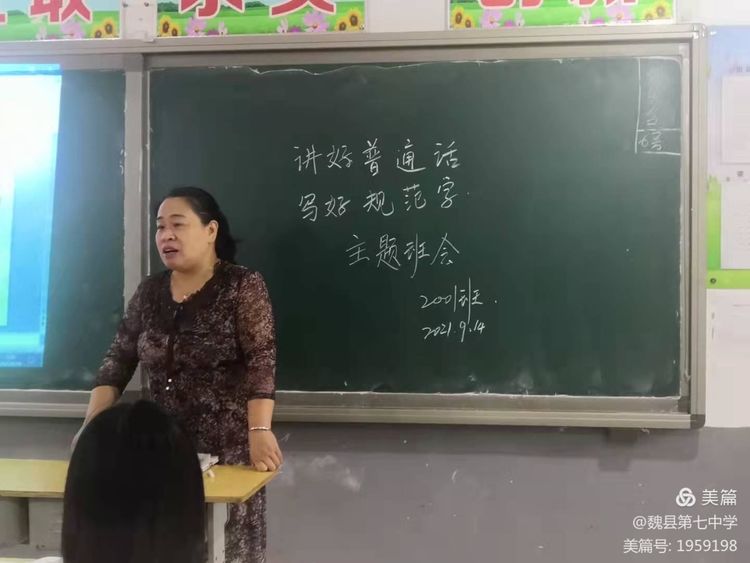 讲好普通话
写好规范字.
主题班会
2001班.
2021.9.14
美篇
@魏县第七中学
美篇号: 1959198